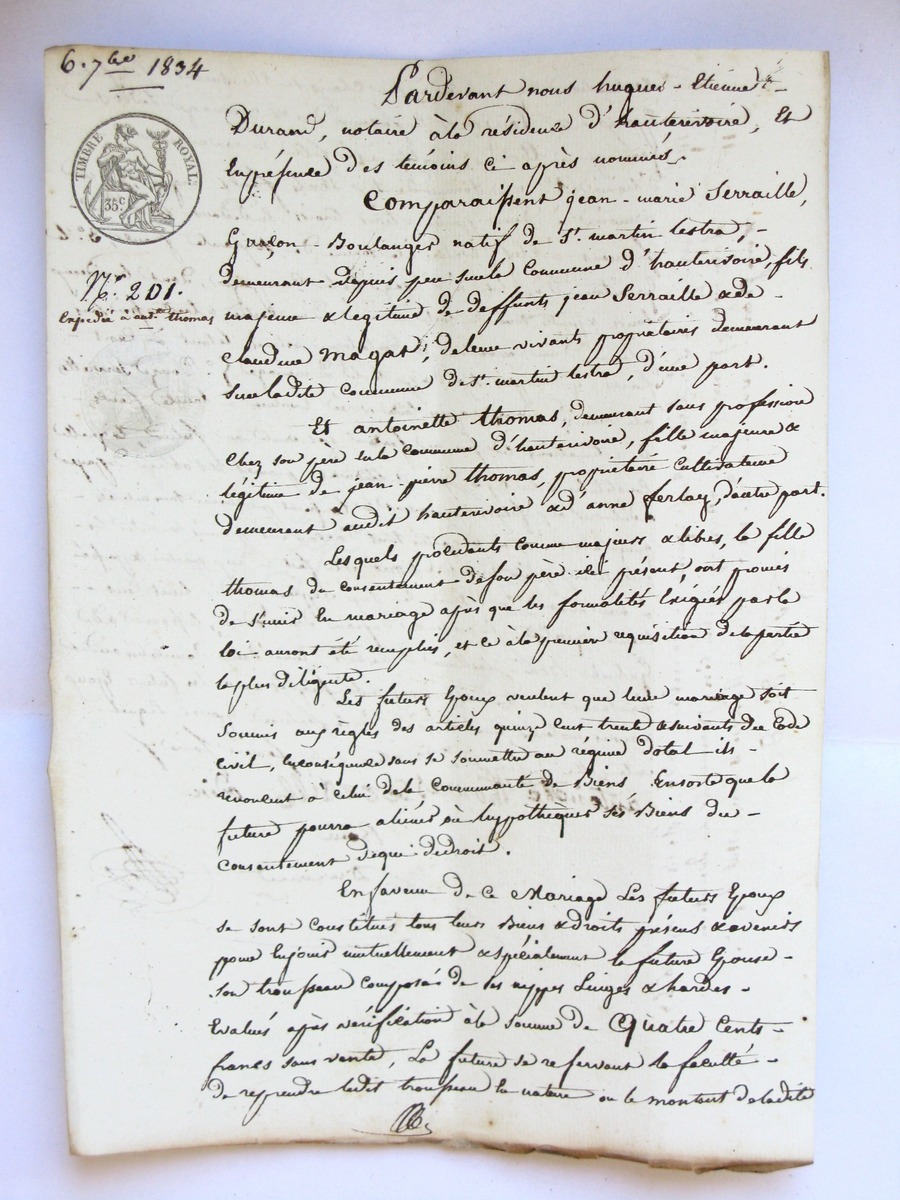 6. 7bre 1834
TIMBRE ROYAL.
35c
No. 201.
Expédié à ant.tte thomas
Pardevant nous hugues - Etienne
Durand, notaire à la résidence d'hauterivoire, Et
En présence des temoins ci après nommés.
Comparaissent jean - marie Serraille,
Garçon - Boulanger natif de St. martin lestra, -
demeurant depuis peu sur la Commune d'hauterivoire, fils
majeur & legitime de deffunts jean Serraille & de -
Claudine magat, de leur vivants propriétaires demeurant
sur la dite commune de St. martin lestra, d'une part.
Et antoinette thomas, demeurant sans profession
chez son père sur la Commune d'hauterivoire, fille majeure &
légitime de jean - pierre thomas, propriétaire cultivateur
demeurant audit hauterivoire & d'anne ferlay, d'autre part.
Lesquels procédants comme majeurs & libres, la fille
thomas du consentement de son père ici présent, ont promis
de s'unir En mariage après que les formalités Exigées par la
loi auront été remplies, et ce à la premiere requisition de la partie
la plus diligente.
Les futurs Epoux veulent que leur mariage soit
soumis aux règles des articles quinze cent trente & suivants du Code
civil, En conséquence sans se soumettre au régime dotal ils -
renoncent à celui de la Communauté de Biens Ensorte que la
future pourra aliéner ou hypothèquer ses Biens du -
consentement de qui de droit.
En faveur de ce Mariage Les futurs Epoux
se sont constitués tous leurs Biens & droits présens & avenirs
pour En jouir mutuellement & spécialement la future Epouse -
son trousseau composés de ses nippes Linges & hardes -
Evalués après vérification à la somme de Quatre Cents -
francs sans vente, La future se reservant la faculté -
de reprendre ledit trousseau En nature ou le montant de la dite